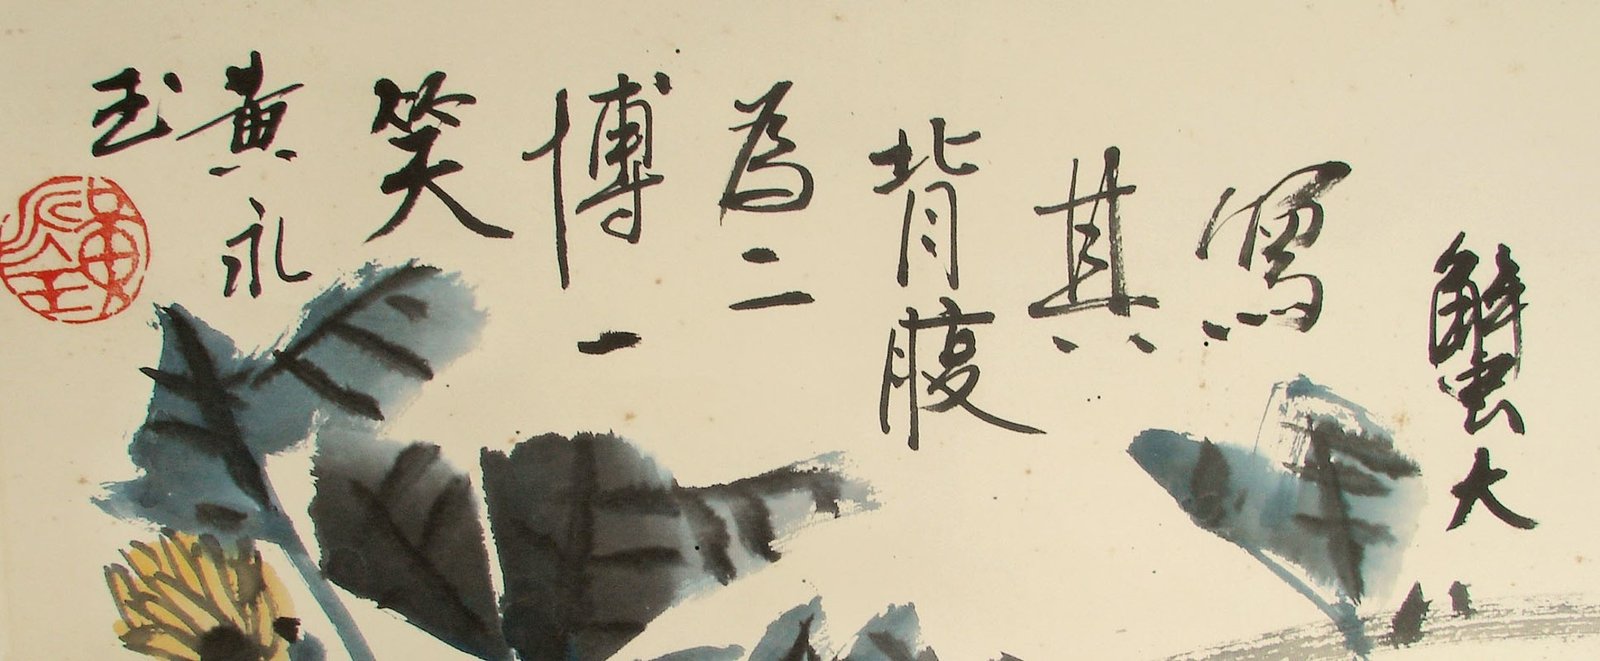 蟹大
寫
其
背腹
為二
博一
笑
黄永
玉
黄永玉